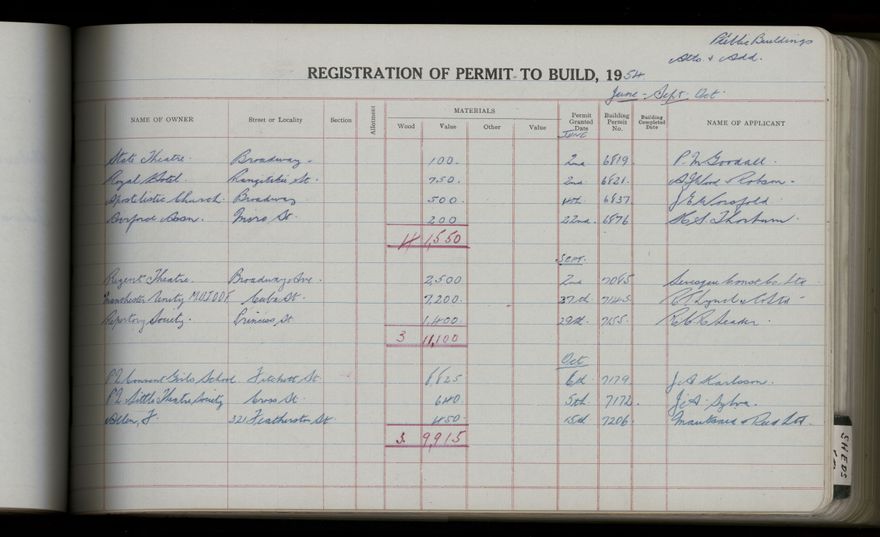 Public Buildings
Alts. & Add.
REGISTRATION OF PERMIT TO BUILD, 1954
June - Sept. Oct.
NAME OF OWNER Street or Locality Section Allotment MATERIALS Permit Granted Date Building Permit No. Building Completed Date NAME OF APPLICANT
Wood Value Other Value
JUNE
State Theatre. Broadway. 100. 2nd 6819. P. M Goodall.
Royal Hotel. Rangitikei St. 750. 2nd 6821. & Robson.
Apostolistic Church. Broadway 500. 4th. 6837. J E
Assn. St. 200 22nd. 6876 H S Thorburn.
4 1,550
SEPT.
Regent Theatre. Broadway Ave. 2,500 2nd 7085
Manchester Unity M.U.I.O.O.F. Cuba St. 7,200. 27th 7145
Repertory Society. Princess St 1,400 29th. 7155.
3 11,100
Oct
P.N. Convent Girls School Fitchett St 8,825 6th. 7179. J. A Karlsson.
P.N. Little Theatre Society Cross St. 640. 5th. 7172. J. A. Sylva.
Allen, F. 321 Featherston St 450. 15th 7206.
3. 9,915
SHEDS